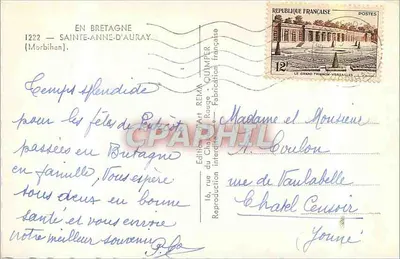 EN BRETAGNE
1222 — SAINTE-ANNE-D'AURAY
(Morbihan).
Temps splendide
pour les fêtes de
passées en Bretagne
en famille, vous espère
tous deux en bonne
santé et vous envoie
notre meilleur souvenir
Editions d'Art REMA QUIMPER
16, rue du Chapeau Rouge
Reproduction interdite - Fabrication française
CPARAMA
RÉPUBLIQUE FRANÇAISE
POSTES
12F
LE GRAND TRIANON-VERSAILLES
Madame et Monsieur
A. Coulon
rue de Vaulabelle
Chatel Censoir
Yonne